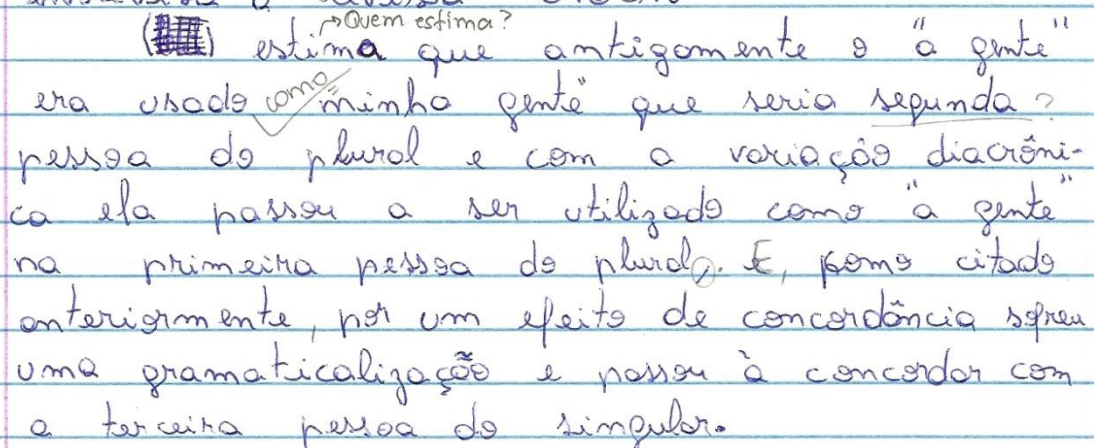 Quem estima?
estima que antigamente o "a gente"
era usado como "minha gente" que seria segunda ?
pessoa do plural e com a variação diacrôni-
ca ela passou a ser utilizado como "a gente"
na primeira pessoa do plural,. E, como citado
anteriormente, por um efeito de concordância sofreu
uma gramaticalização e passou à concordar com
a terceira pessoa do singular.